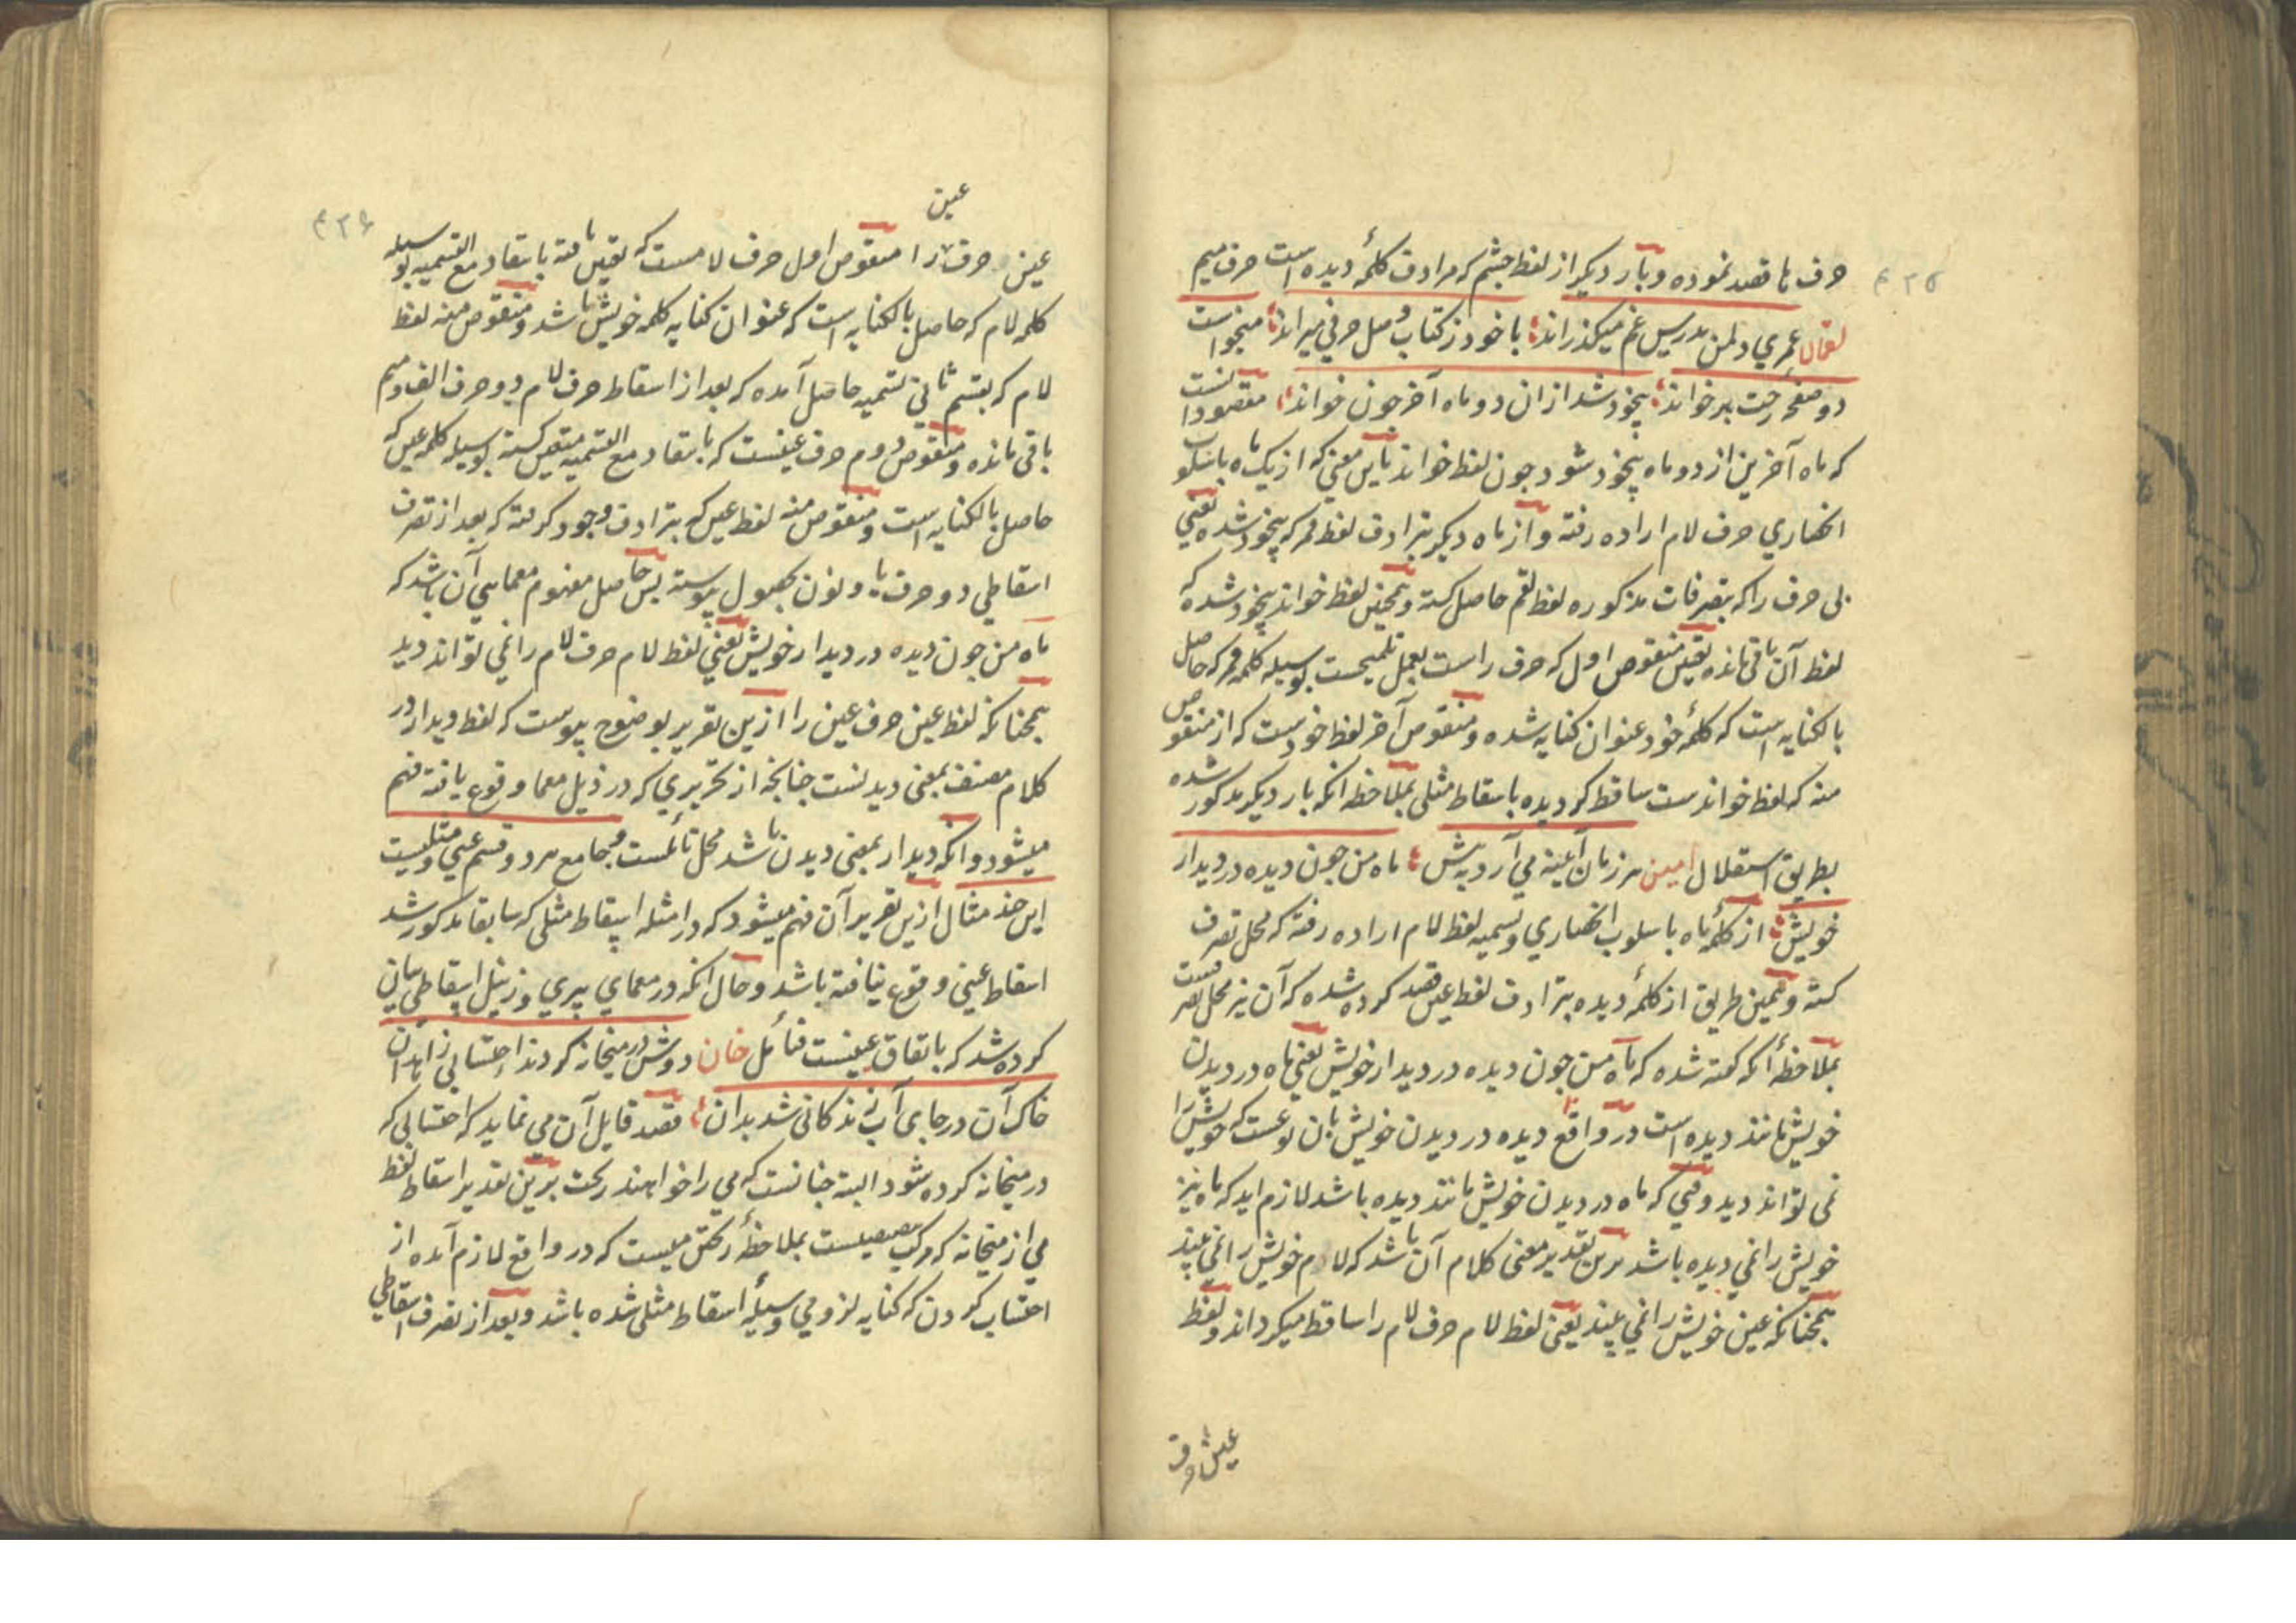 ۴۲۵
حرف ما قصد نموده و بار دیکر از لفظ چشم که مرادف کلمۀ دیده است حرف میم
لقمان عمری دلمن بدرس غم میکذراند باخود ز کتاب وصل حرفی میراند میخواست
دو صفحه رخت بر خواند بیخود شد از ان دو ماه آخر جون خواند مقصود انست
که ماه آخرین از دو ماه بیخود شود جون لفظ خواند باین معنی که از یک ماه باسلوب
انحصاری حرف لام اراده رفته و از ماه دیکر بترادف لفظ قمر که بیخود شده یعنی
بی حرف را که بتصرفات مذکوره لفظ لقم حاصل کشته و همچنین لفظ خواند بیخود شده که
لفظ آن باقی مانده تعیین منقوص اول که حرف راست بعمل تلمیحست بوسیله کلمه قمر که حاصل
بالکنایه است که کلمۀ خود عنوان کنایه شده و منقوص آخر لفظ خودست که از منقوص
منه که لفظ خواندست ساقط کردیده باسقاط مثلی بملاحظه انکه بار دیکر مذکور شده
بطریق استقلال امین هر زمان آینه می آرد به پیش ماه من جون دیده در دیدار
خویش از کلمۀ ماه باسلوب انحصاری و تسمیه لفظ لام اراده رفته که محل تصرف
کشته و بهمین طریق از کلمۀ دیده بترادف لفظ عین قصد کرده شده که آن نیز محل تصرفست
بملاحظۀ انکه کفته شده که ماه من جون دیده در دیدار خویش یعنی ماه در دیدن
خویش مانند دیده است در واقع دیده در دیدن خویش بان نوعست که خویش را
نمی تواند دید وقتی که ماه در دیدن خویش مانند دیده باشد لازم اید که ماه نیز
خویش را نمی دیده باشد برین تقدیر معنی کلام آن باشد که لام خویش را نمی بیند
همچنانکه عین خویش را نمی بیند یعنی لفظ لام حرف لام را ساقط میکرداند و لفظ
عین حرف
۴۲۶
عین
عین حرف را منقوص اول حرف لامست که تعیین یافته بانتقاد مع التسمیه بوسیله
کلمه لام که حاصل بالکنایه است که عنوان کنایه کلمه خویش باشد و منقوص منه لفظ
لام که بقسم ثانی تسمیه حاصل آمده که بعد از اسقاط حرف لام دو حرف الف و میم
باقی مانده و منقوص دوم حرف عینست که بانتقاد مع التسمیه متعین کشته بوسیله کلمه عین که
حاصل بالکنایه است و منقوص منه لفظ عین که بترادف وجود کرفته که بعد از تصرف
اسقاطی دو حرف یا و نون بحصول پیوسته پس حاصل مفهوم معمایی آن باشد که
ماه من جون دیده در دیدار خویش یعنی لفظ لام حرف لام را نمی تواند دید
همچنانکه لفظ عین حرف عین را ازین تقریر بوضوح پیوست که لفظ دیدار در
کلام مصنف بمعنی دیدنست چنانچه از تحریری که در ذیل معما وقوع یافته فهم
میشود و انکه دیدار بمعنی دیدن باشد محل تأملست و جامع هر دو قسم عینی و مثلیست
این چند مثال ازین تقریر آن فهم میشود که در امثله اسقاط مثلی که سابقا مذکور شد
اسقاط عینی وقوع نیافته باشد و حال انکه در معمای پیری و زنبل اسقاطی بیان
کرده شد که باتفاق عینست فتأمل خان دوش در میخانه کردند احتسابی زاهدان
خاک آن در جای آب زندکانی شد بدان قصد قایل آن می نماید که احتسابی که
در میخانه کرده شود البته چنانست که می را خواهند ریخت برین تقدیر اسقاط لفظ
می از میخانه که مرکب بعینست بملاحظۀ ریختن میست که در واقع لازم آمده از
احتساب کردن که کنایه لزومی وسیلۀ اسقاط مثلی شده باشد و بعد از تصرف اسقاطی